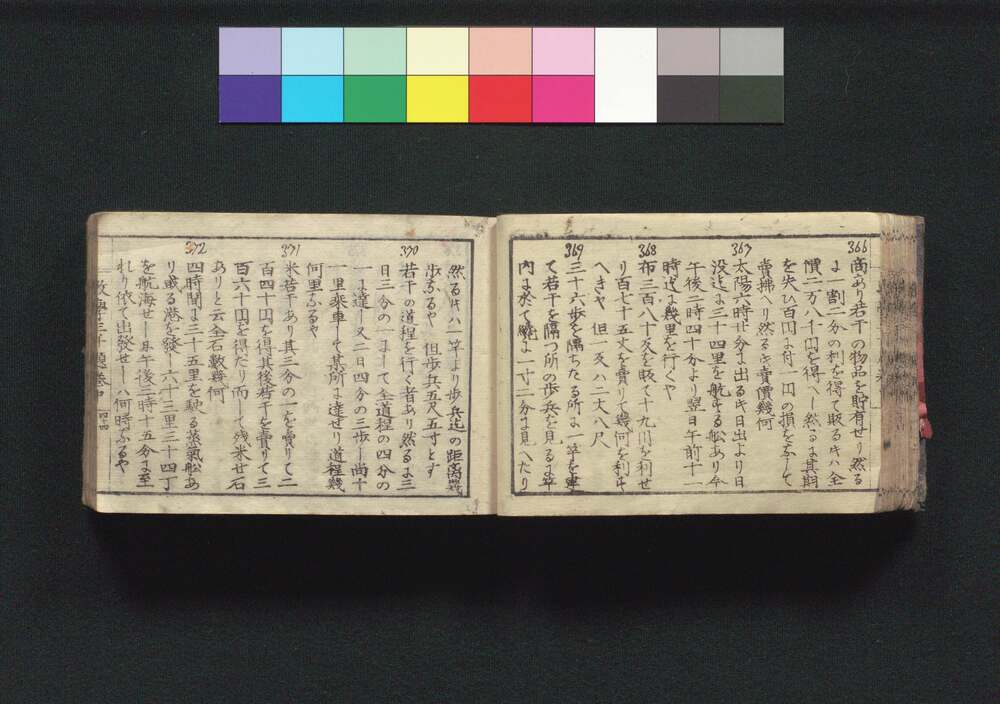 366
商あり若干の物品を貯有せり然る
に一割二分の利を得て取るキハ全
價二万八千円を得べし然るに其期
を失ひ百円に付一円の損をなして
賣拂へり然るキ賣價幾何
367
太陽六時廿分に出るキ日出より日
没迄に三十四里を航する舩あり今
午後二時四十分より翌日午前十一
時迄に幾里を行くや
368
布三百八十反を販て十九円を利せ
り百七十五丈を賣りて幾何を利す
へきや 但一反ハ二丈八尺
369
三十六歩を隔ちたる所に一竿を建
て若干を隔つ所の歩兵を見るに竿
内に於て 一寸二分に見へたり
然るキハ竿より歩兵迄の距离幾
歩なるや 但歩兵五尺五寸とす
370
若干の道程を行く者あり然るに三
日三分の一にして全道程の四分の
一に達し又二日四分の三歩し尚十
一里乗車して某所に達せり道程幾
何里なるや
371
米若干あり其三分の一を賣りて二
百四十円を得其後若干を賣りて三
百六十円を得たり而して残米廿石
ありと云全石數幾何
372
四時間に三十五里を駛る蒸氣舩あ
り或る港を發し六十三里三十四丁
を航海せし旹午後三時十五分に至
れり依て出發せしハ何時なるや
數學三千題巻四 四十四